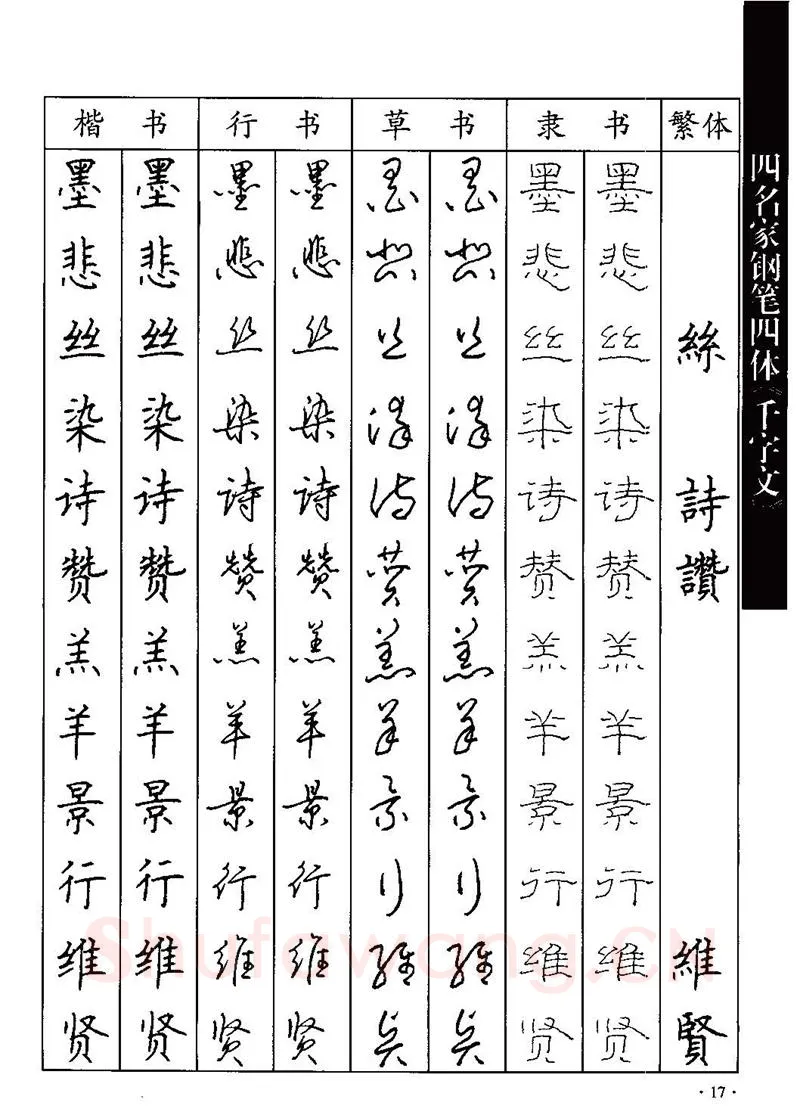 楷 书 行 书 草 书 隶 书 繁体
墨 墨 墨 墨 墨 墨 墨 墨
悲 悲 悲 悲 悲 悲 悲 悲
丝 丝 丝 丝 丝 丝 丝 丝 絲
染 染 染 染 染 染 染 染
诗 诗 诗 诗 诗 诗 诗 诗 詩
赞 赞 赞 赞 赞 赞 赞 赞 讚
羔 羔 羔 羔 羔 羔 羔 羔
羊 羊 羊 羊 羊 羊 羊 羊
景 景 景 景 景 景 景 景
行 行 行 行 行 行 行 行
维 维 维 维 维 维 维 维 維
贤 贤 贤 贤 贤 贤 贤 贤 賢
四名家钢笔四体《千字文》
Shufawang.CN
·17·